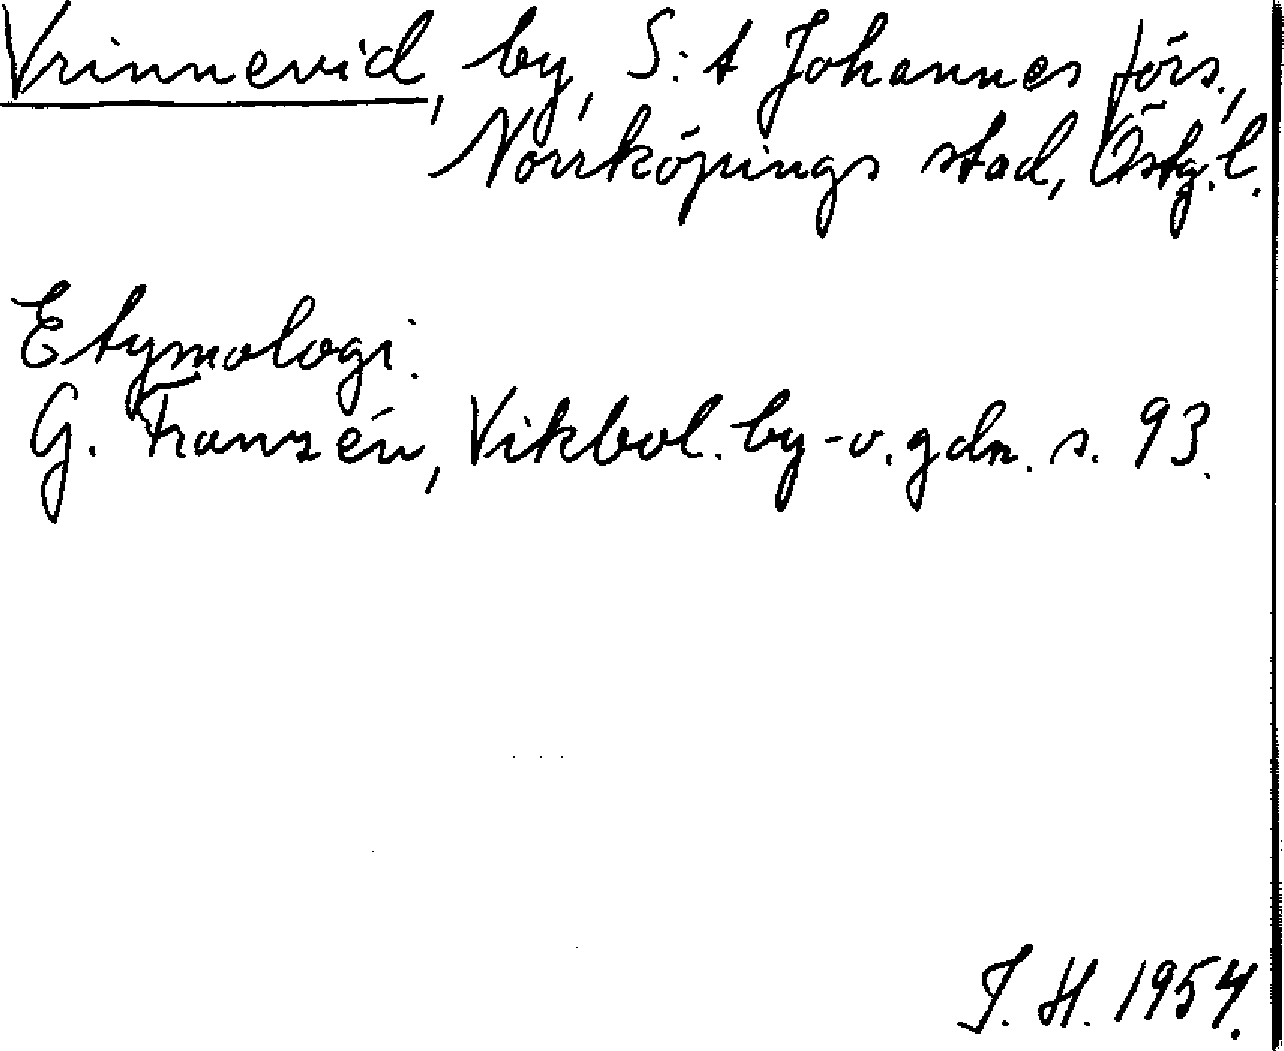 Vrinnevid, by, S:t Johannes förs.,
Norrköpings stad, Östg.l.
Etymologi.
G. Franzén, Vikbol. by- o. gdn. s. 93.
J. H. 1954.